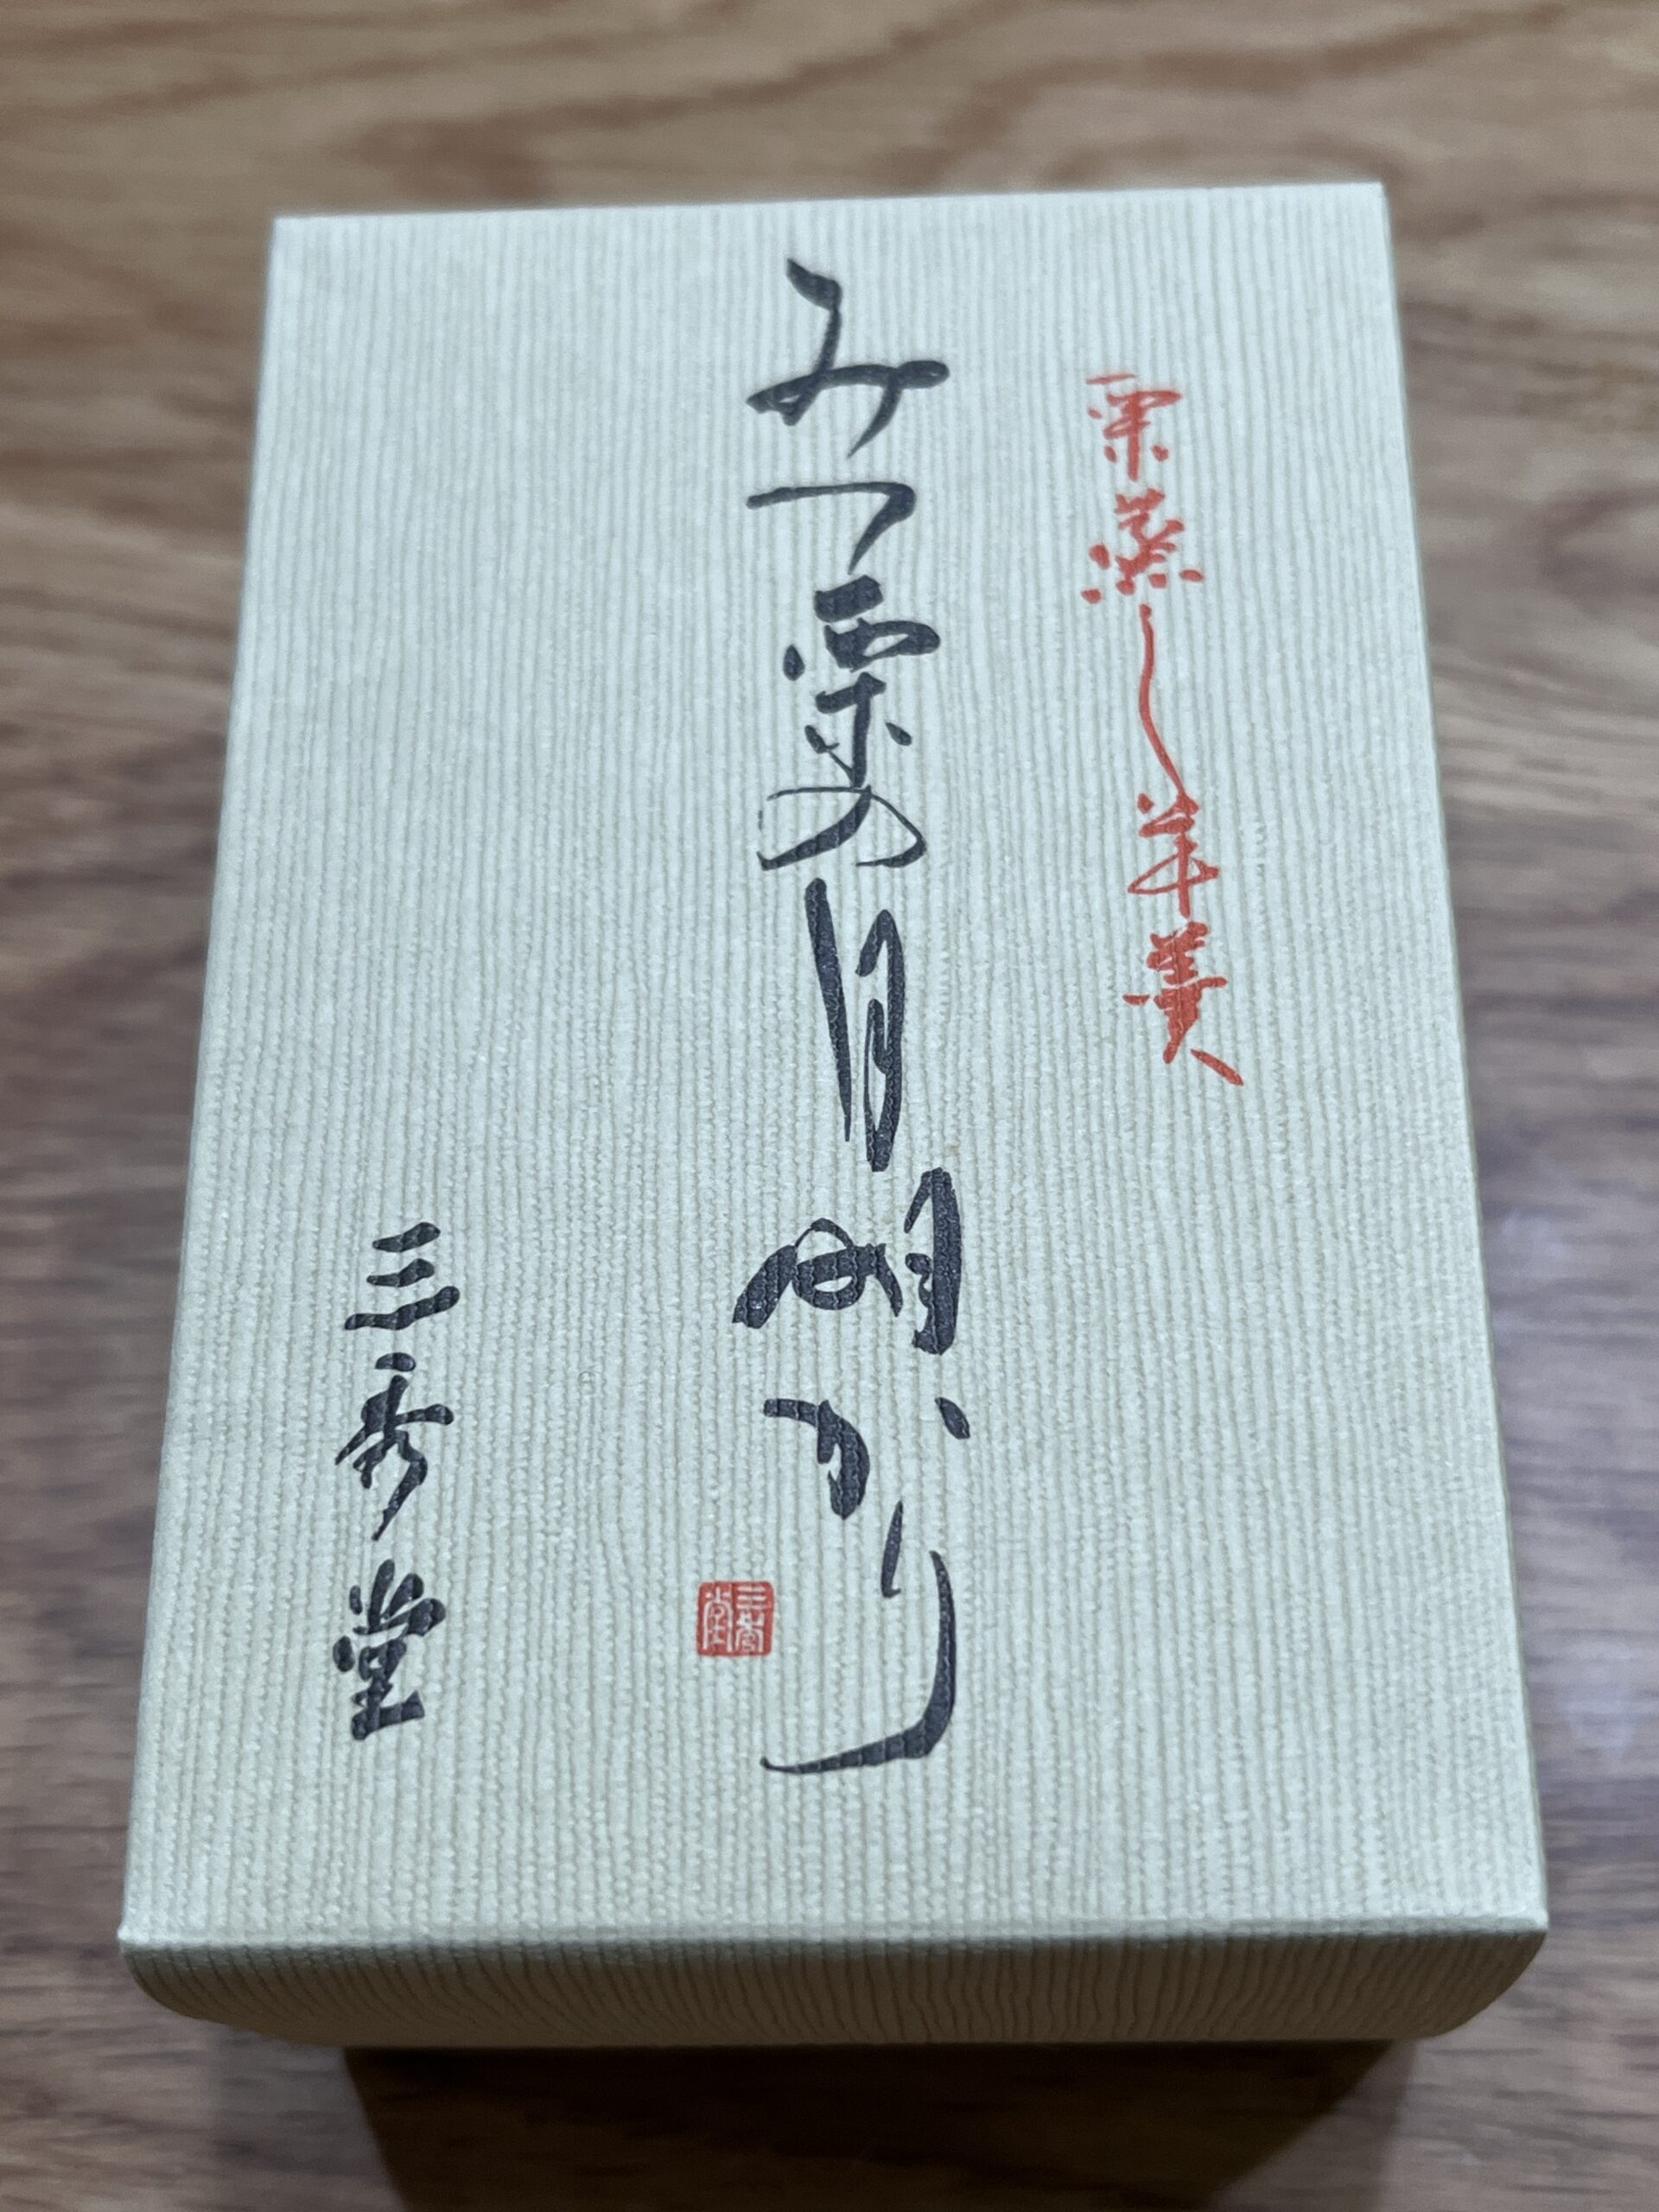 栗蒸し羊羹
みつ栗の月明かり
三秀堂
三秀堂